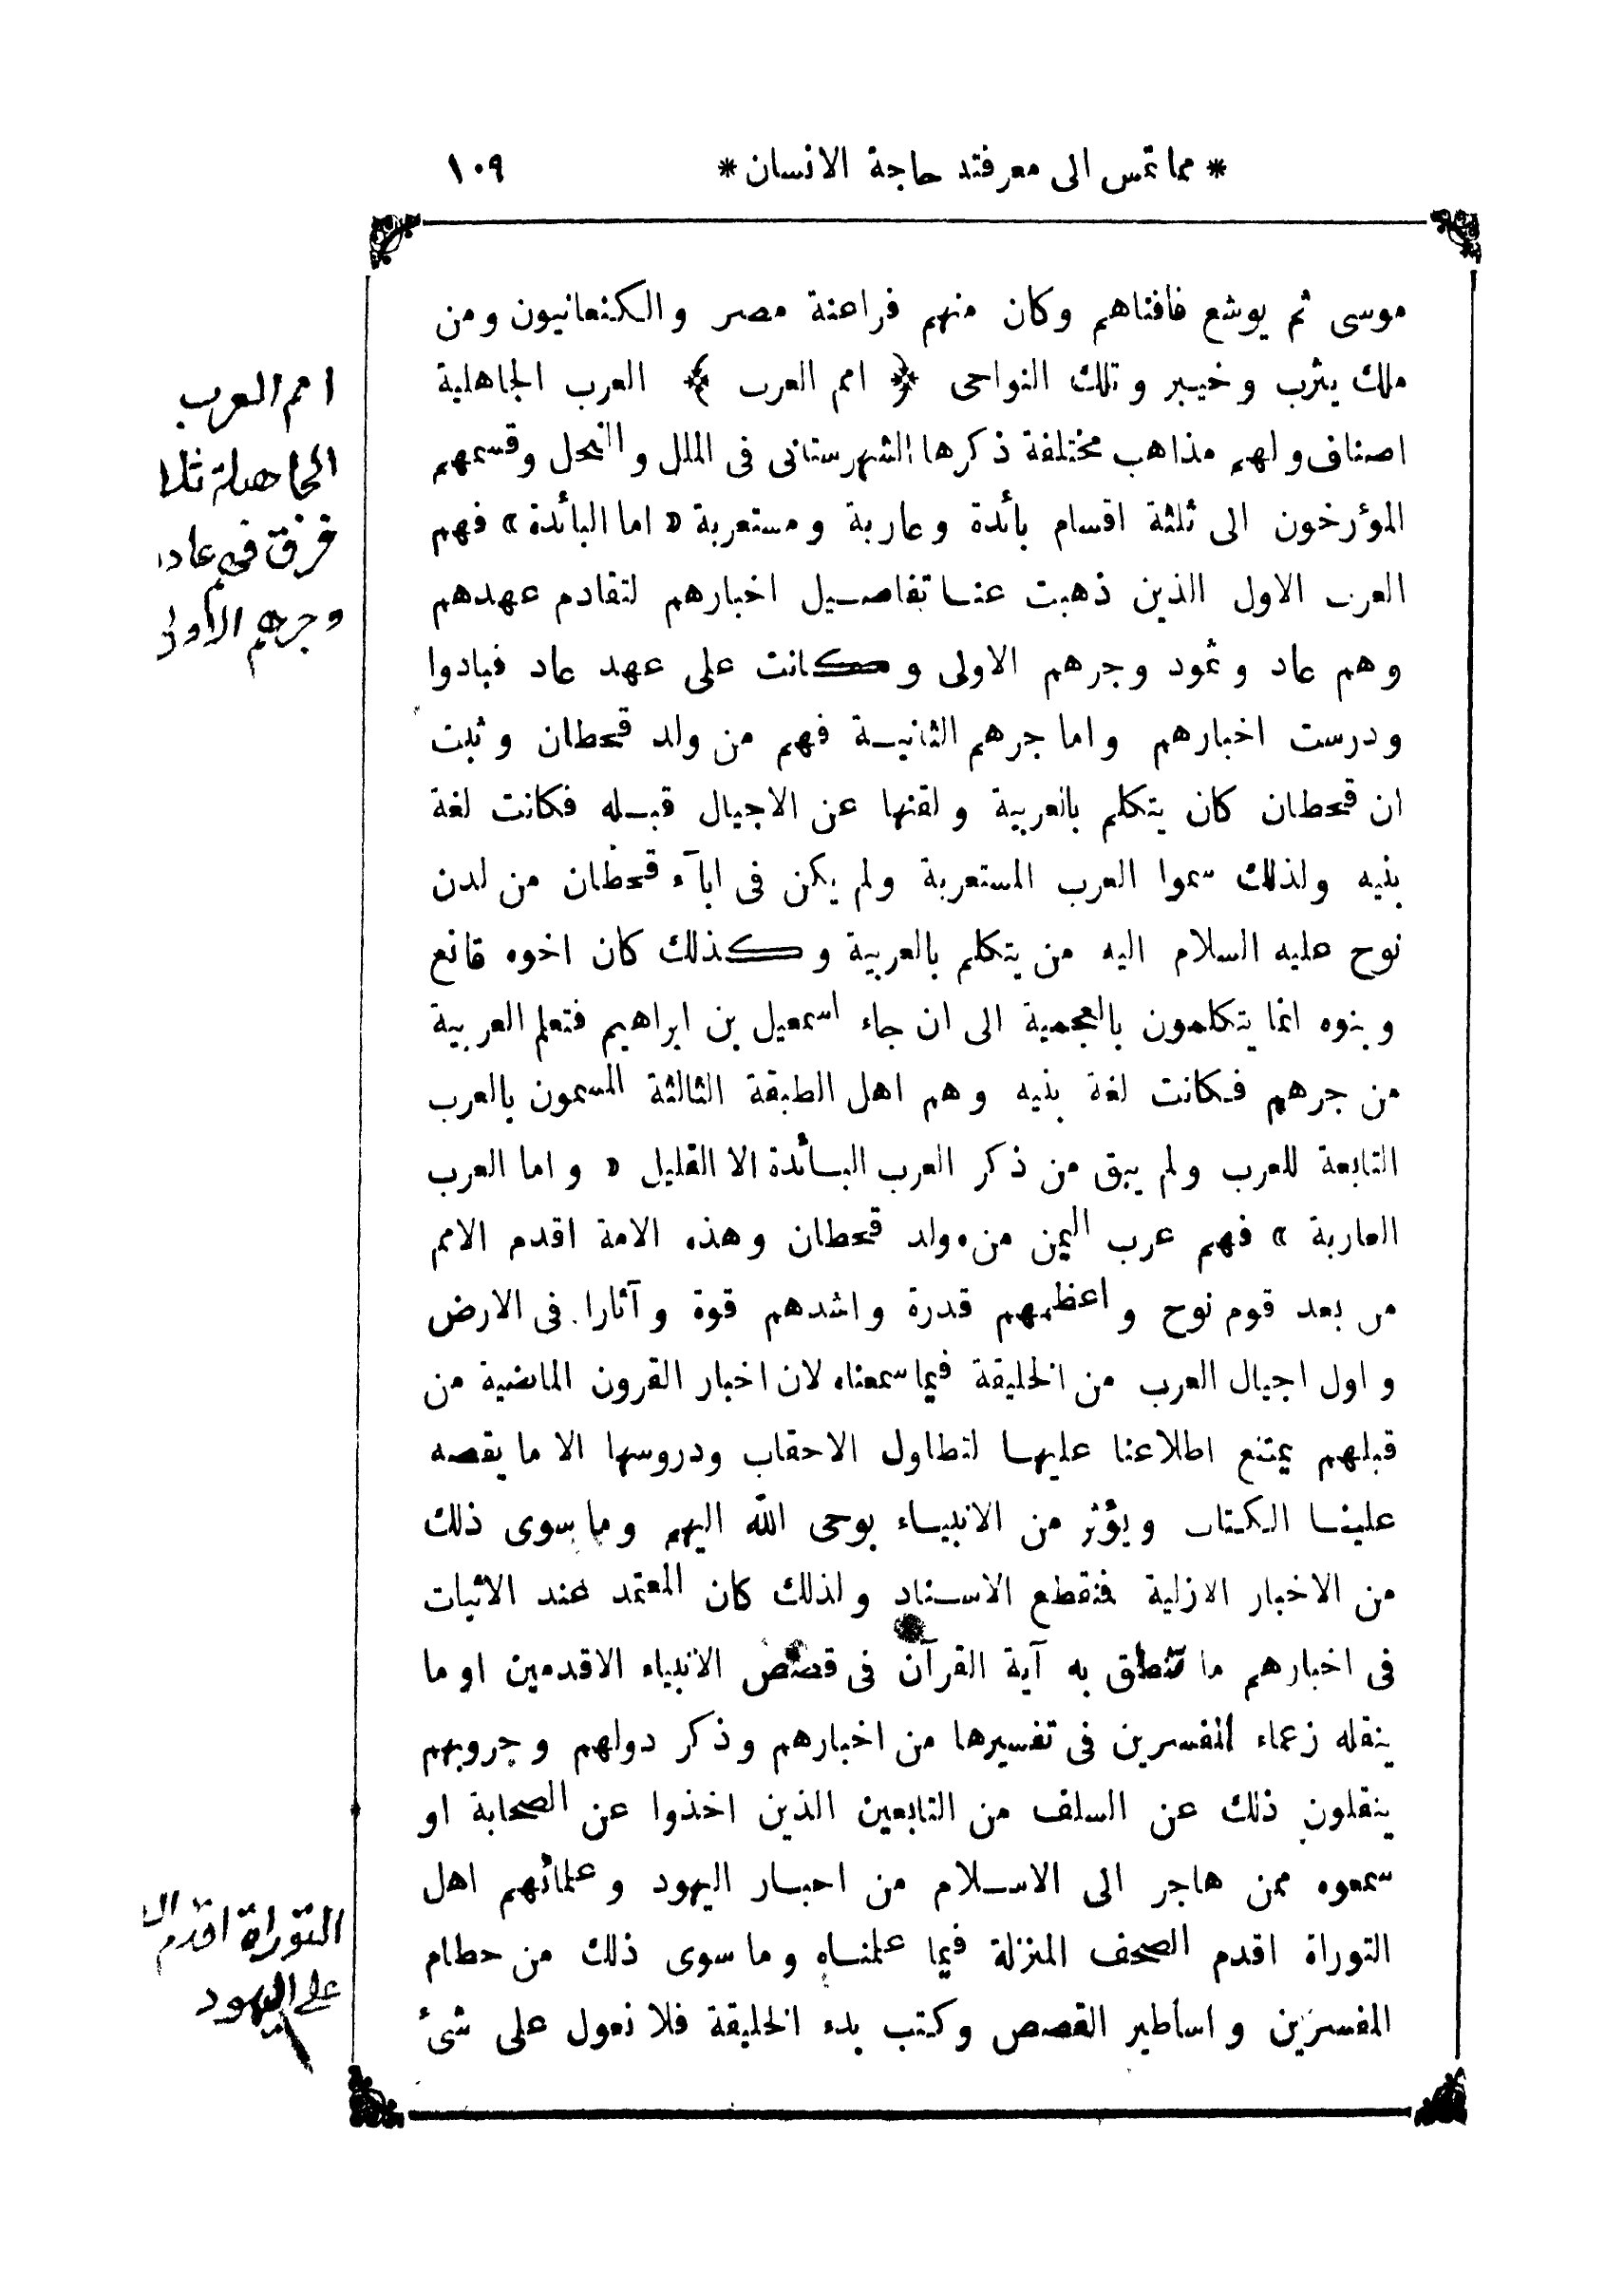 * مما تمس الى معرفته حاجة الانسان * ١٠٩
موسى ثم يوشع فافناهم وكان منهم فراعنة مصر والكنعانيون ومن
ملك يثرب وخيبر وتلك النواحى ﴿ امم العرب ﴾ العرب الجاهلية
اصناف ولهم مذاهب مختلفة ذكرها الشهرستانى فى الملل والنحل وقسمهم
المؤرخون الى ثلثة اقسام بائدة وعاربة ومستعربة « اما البائدة » فهم
العرب الاول الذين ذهبت عنا تفاصيل اخبارهم لتقادم عهدهم
وهم عاد وثمود وجرهم الاولى وكانت على عهد عاد فبادوا
ودرست اخبارهم واما جرهم الثانية فهم من ولد قحطان وثبت
ان قحطان كان يتكلم بالعربية ولقنها عن الاجيال قبله فكانت لغة
بنيه ولذلك سموا العرب المستعربة ولم يكن فى اباآء قحطان من لدن
نوح عليه السلام اليه من يتكلم بالعربية وكذلك كان اخوه فانع
وبنوه انما يتكلمون بالعجمية الى ان جاء اسمعيل بن ابراهيم فتعلم العربية
من جرهم فكانت لغة بنيه وهم اهل الطبقة الثالثة المسمون بالعرب
التابعة للعرب ولم يبق من ذكر العرب البائدة الا القليل « واما العرب
العاربة » فهم عرب اليمن من ولد قحطان وهذه الامة اقدم الامم
من بعد قوم نوح واعظمهم قدرة واشدهم قوة وآثارا فى الارض
واول اجيال العرب من الخليقة فيما سمعناه لان اخبار القرون الماضية من
قبلهم يمتنع اطلاعنا عليها لتطاول الاحقاب ودروسها الا ما يقصه
علينا الكتاب ويؤثر من الانبياء بوحى الله اليهم وما سوى ذلك
من الاخبار الازلية فنقطع الاسناد ولذلك كان المعتمد عند الاثبات
فى اخبارهم ما تنطق به آية القرآن فى قصص الانبياء الاقدمين او ما
ينقله زعماء المفسرين فى تفسيرها من اخبارهم وذكر دولهم وحروبهم
ينقلون ذلك عن السلف من التابعين الذين اخذوا عن الصحابة او
سمعوه ممن هاجر الى الاسلام من احبار اليهود وعلمائهم اهل
التوراة اقدم الصحف المنزلة فيما علمناه وما سوى ذلك من حطام
المفسرين واساطير القصص وكتب بدء الخليقة فلا نعول على شئ
امم العرب
الجاهلية ثلا
فرق فى عاد
وجرهم الأولى
التوراة اقدم
على اليهود